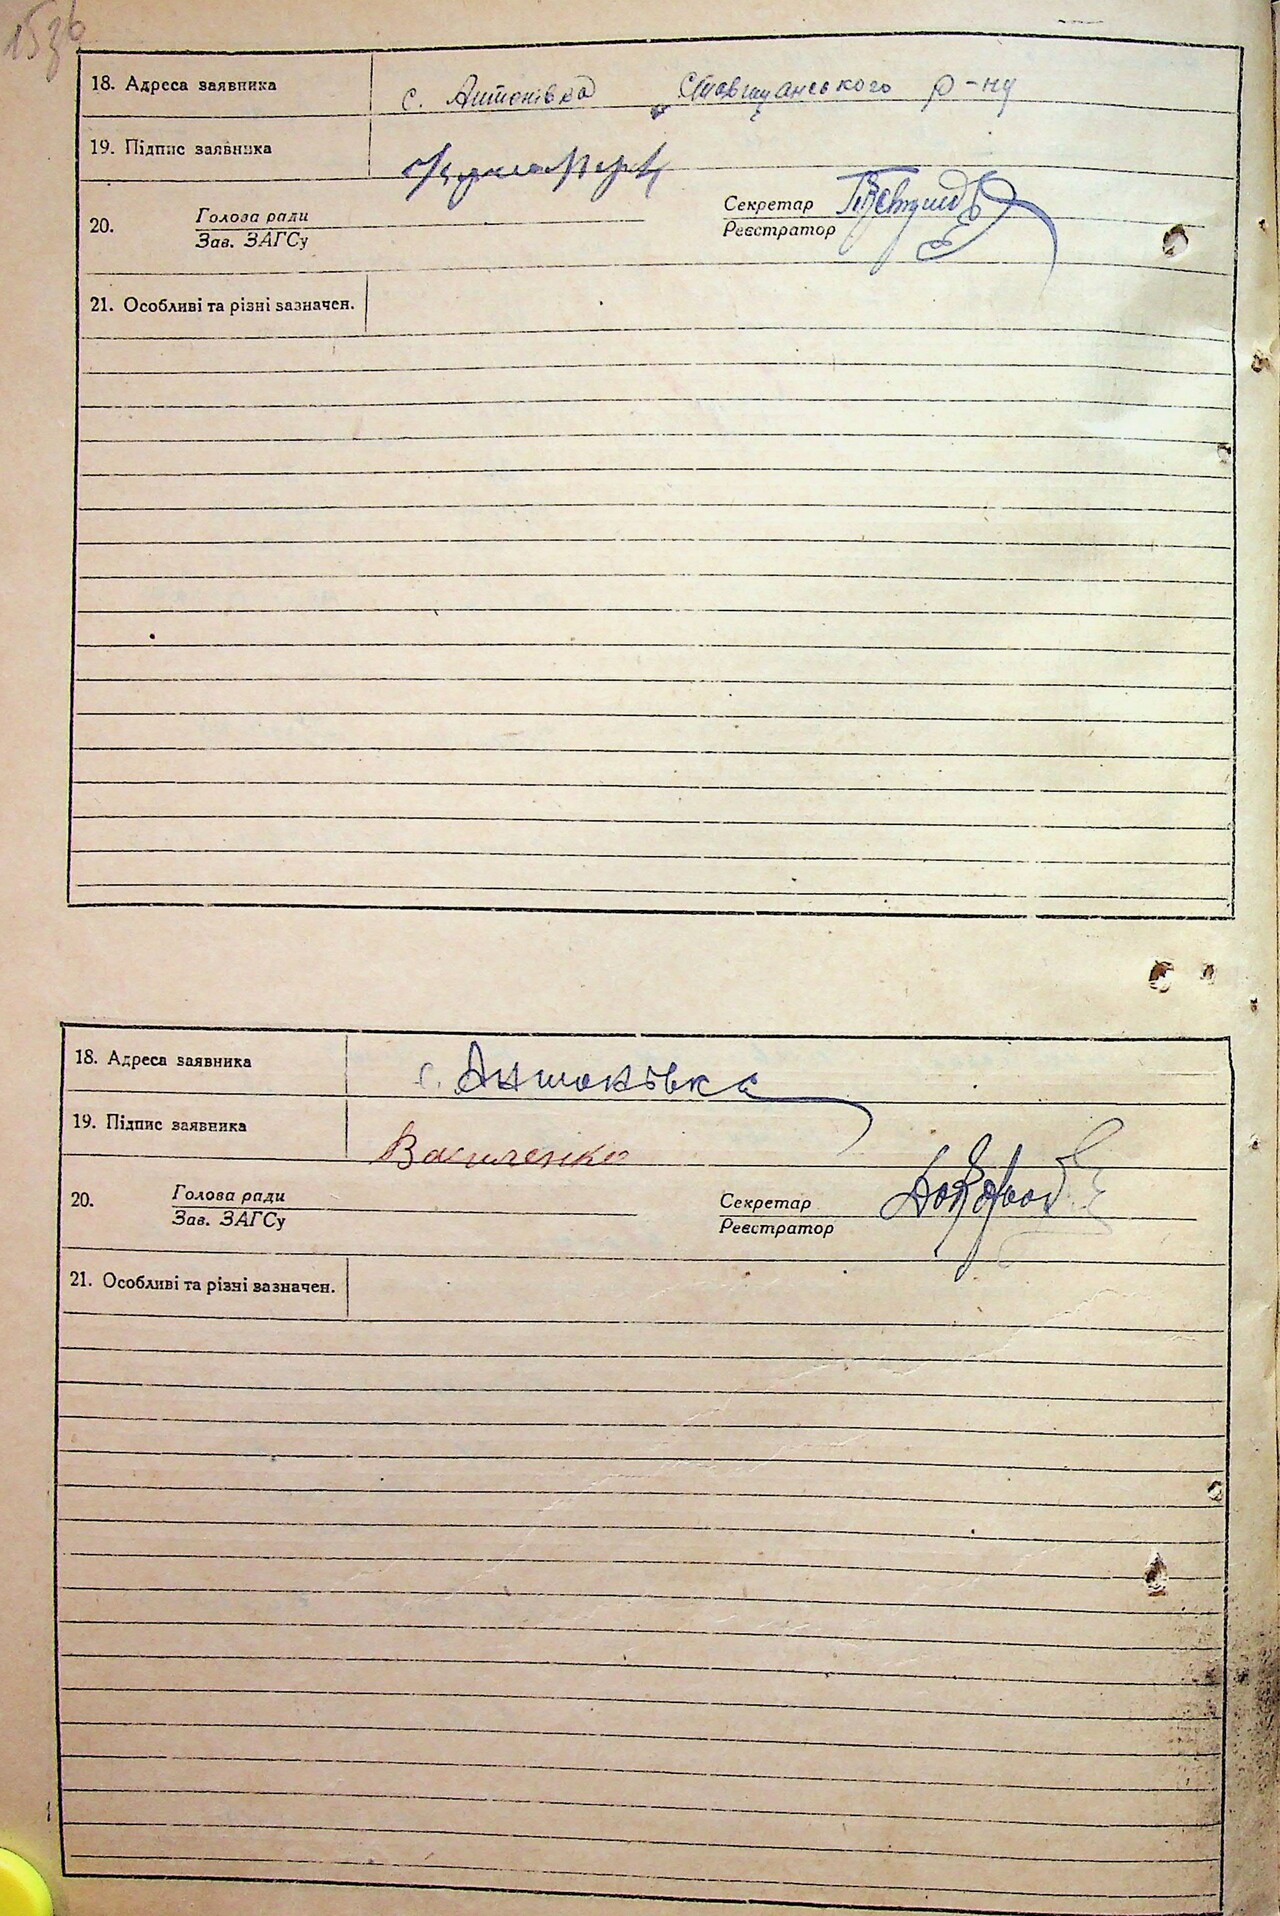 153б
18. Адреса заявника с. Антонівка Ставищанського р-ну
19. Підпис заявника
20. Голова ради Секретар
Зав. ЗАГСу Реєстратор
21. Особливі та різні зазначен.
18. Адреса заявника с. Антонівка
19. Підпис заявника Василенко
20. Голова ради Секретар
Зав. ЗАГСу Реєстратор
21. Особливі та різні зазначен.